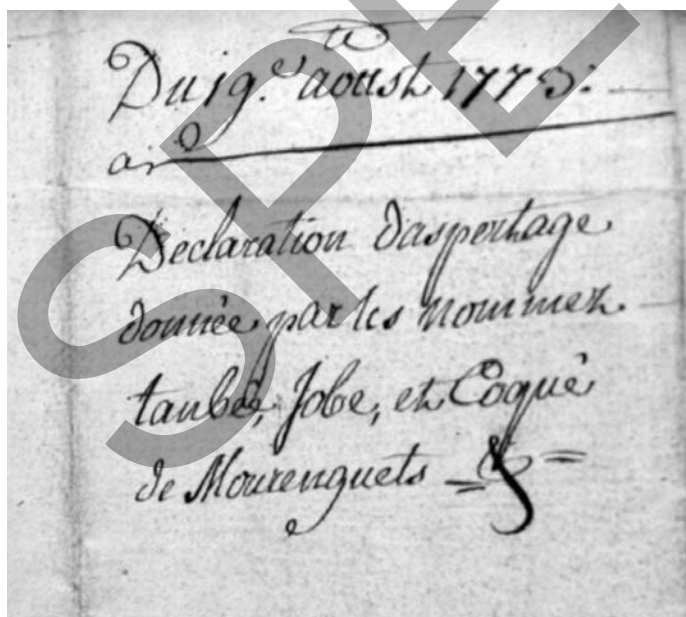 Du 19.e aoust 1773.
Declaration d'aspertage
donnée par les nommez
taubé, Jobe, et Coqué
de Mourenguets
SPE